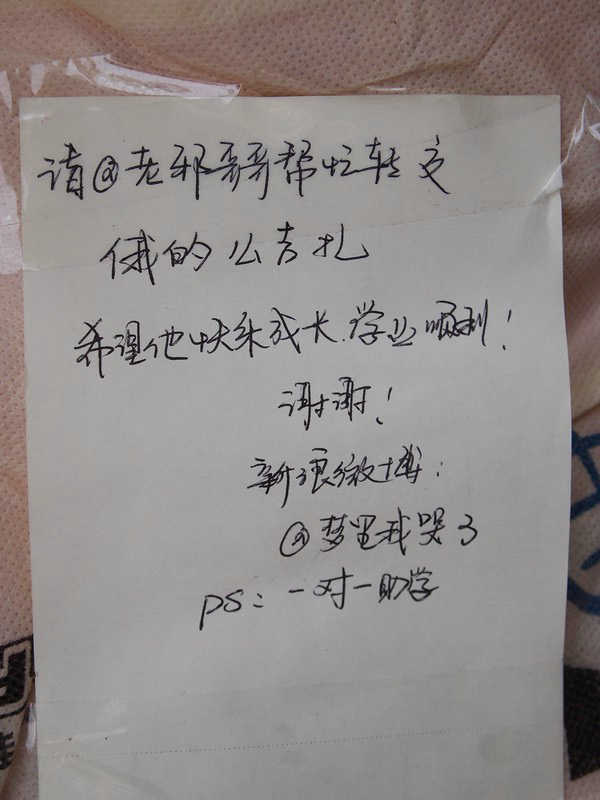 请@老邪哥哥帮忙转交
俄的么吉扎
希望他快乐成长.学业顺利!
谢谢!
新浪微博:
@梦里我哭了
PS:一对一助学